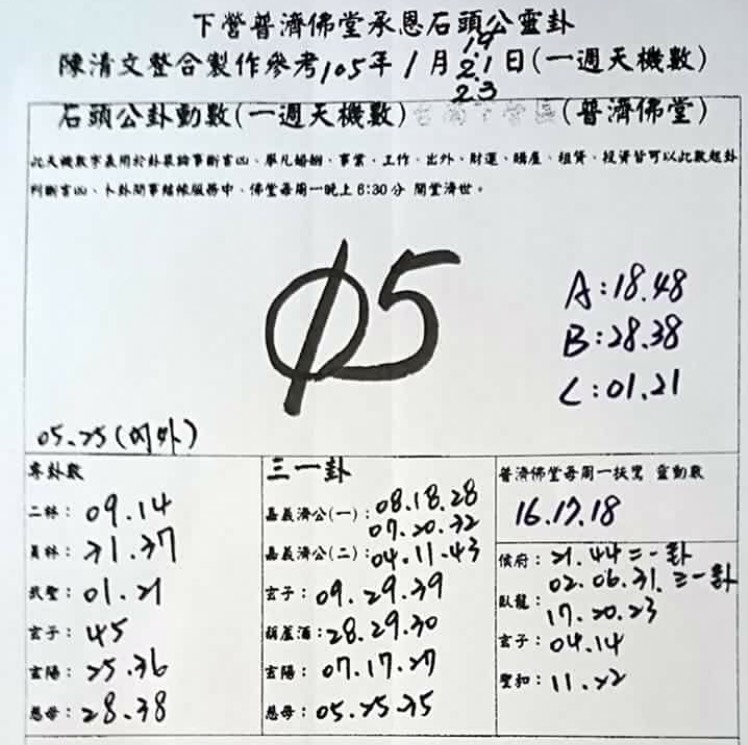 下營普濟佛堂承恩石頭公靈卦
陳清文整合製作參考105年1月19 21 23日(一週天機數)
石頭公卦動數(一週天機數) (普濟佛堂)
此天機數字表用於卦象論事斷吉凶、舉凡婚姻、事業、工作、出外、財運、購屋、租賃、投資皆可以此數起卦
判斷吉凶、卜卦問事結緣服務中、佛堂每周一晚上6:30分 開堂濟世。
05
A:18.48
B:28.38
C:01.21
05.25(內外)
專卦數
二林:09.14
員林:31.37
武聖:01.21
玄子:45
玄陽:25.36
慈母:28.38
三一卦
嘉義濟公(一):08.18.28
07.20.32
嘉義濟公(二):04.11.43
玄子:09.29.39
葫蘆酒:28.29.30
玄陽:07.17.27
慈母:05.25.35
普濟佛堂每周一扶鸞 靈動數
16.17.18
候府:21.44二一卦
02.06.31.三一卦
臥龍:17.20.23
玄子:04.14
聖和:11.22